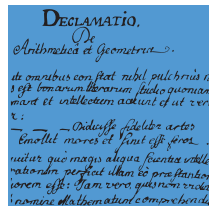 DECLAMATIO.
De
Arithmetica et Geometria.
ut omnibus constat nihil pulchrius n
s est bonarum literarum studio quoniam
mant et intellectum acuunt et ut ver
r:
Didicisse fideliter artes
Emollit mores et sinit esse feros.
uitur quo magis aliqua scientia intelle
rationem perficit illam eo præstantio
iorem esse: Jam vero, quis non videt
nomine Mathematum comprehendu